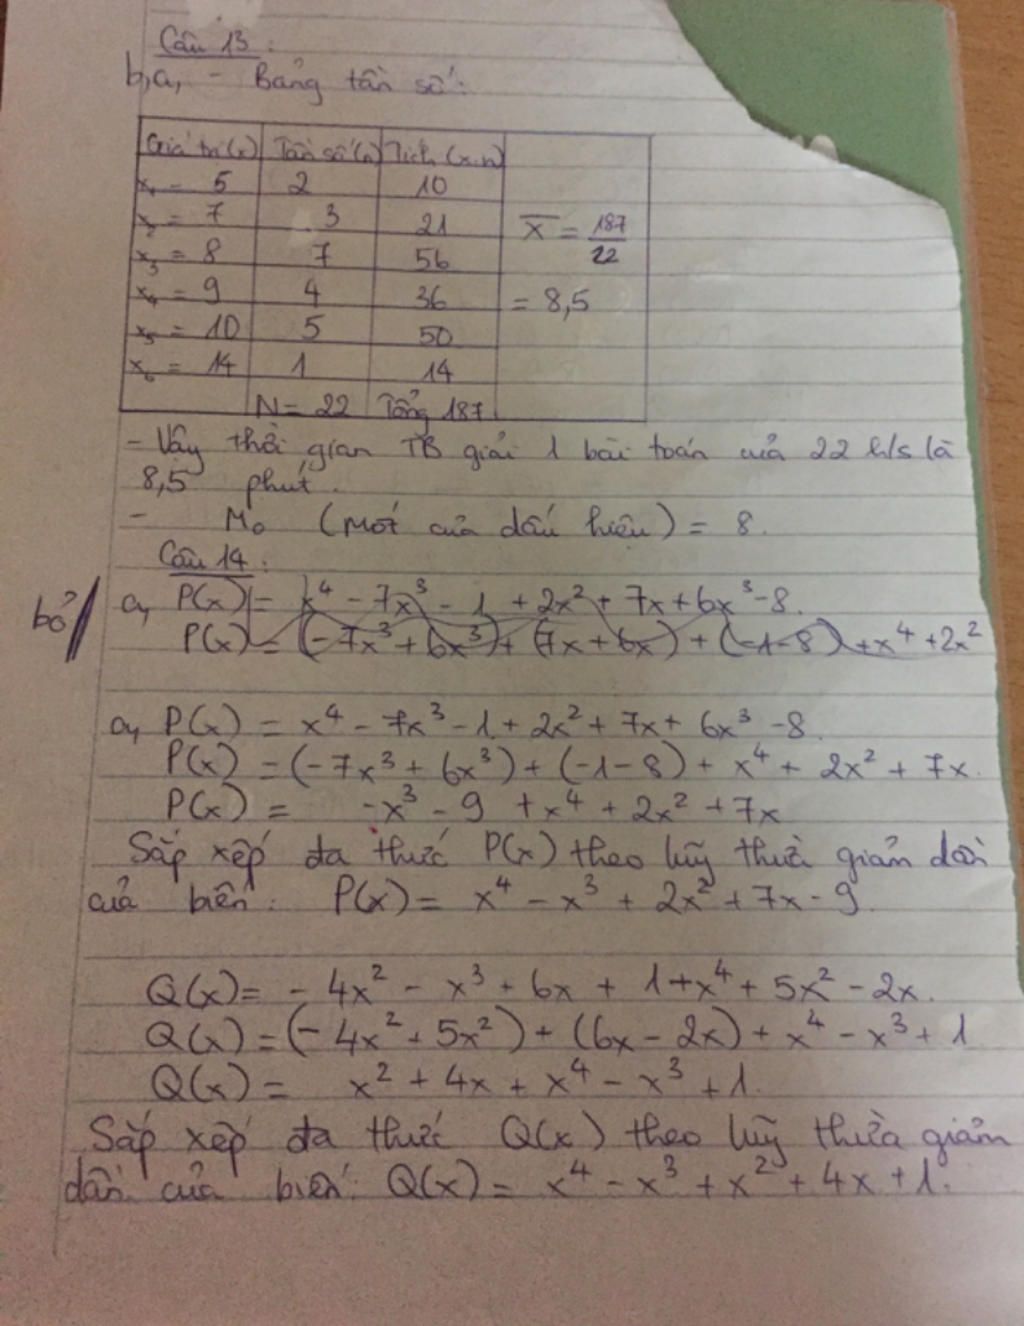 Câu 13:
b, a, - Bảng tần số:
Giá trị (x) Tần số (n) Tích (x.n)
x₁ = 5 2 10
x₂ = 7 3 21 X̅ = 187/22
x₃ = 8 7 56
x₄ = 9 4 36 = 8,5
x₅ = 10 5 50
x₆ = 14 1 14
N = 22 Tổng 187
- Vậy thời gian TB giải 1 bài toán của 22 h/s là
8,5 phút.
- M₀ (Mốt của dấu hiệu) = 8.
Câu 14:
bỏ a, P(x) = x⁴ - 7x³ - 1 + 2x² + 7x + 6x³ - 8.
P(x) = (-7x³ + 6x³) + (7x + 6x) + (-1 - 8) + x⁴ + 2x²
a, P(x) = x⁴ - 7x³ - 1 + 2x² + 7x + 6x³ - 8.
P(x) = (-7x³ + 6x³) + (-1 - 8) + x⁴ + 2x² + 7x.
P(x) = -x³ - 9 + x⁴ + 2x² + 7x
Sắp xếp đa thức P(x) theo lũy thừa giảm dần
của biến: P(x) = x⁴ - x³ + 2x² + 7x - 9.
Q(x) = - 4x² - x³ + 6x + 1 + x⁴ + 5x² - 2x.
Q(x) = (- 4x² + 5x²) + (6x - 2x) + x⁴ - x³ + 1
Q(x) = x² + 4x + x⁴ - x³ + 1.
Sắp xếp đa thức Q(x) theo lũy thừa giảm
dần của biến: Q(x) = x⁴ - x³ + x² + 4x + 1.